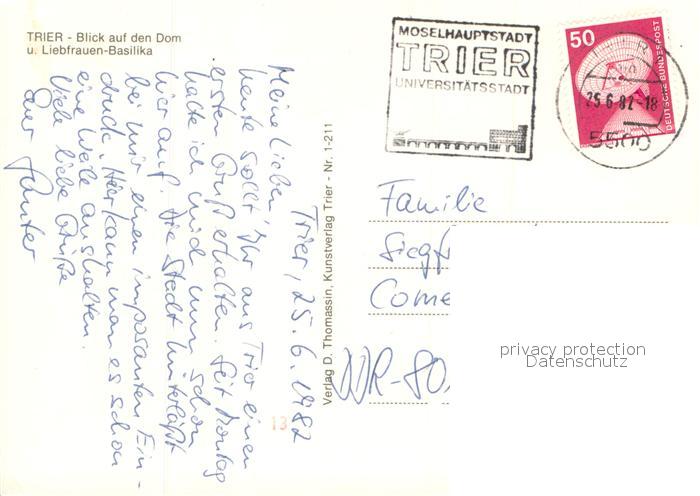 TRIER - Blick auf den Dom
u. Liebfrauen-Basilika
MOSELHAUPTSTADT
TRIER
UNIVERSITÄTSSTADT
50
DEUTSCHE BUNDESPOST
25.6.82-18
5500
Trier, 25.6.1982
Meine Lieben,
heute sollt Ihr aus Trier einen
ersten Gruß erhalten. Seit Montag
halte ich mich nun schon
hier auf. Die Stadt hinterläßt
bei mir einen imposanten Ein-
druck. Hier kann man es schon
eine Weile aushalten.
Viele liebe Grüße
Euer Günter
Verlag D. Thomassin, Kunstverlag Trier - Nr. 1-211
13
Familie
Siegf
Come
WR-80
privacy protection
Datenschutz